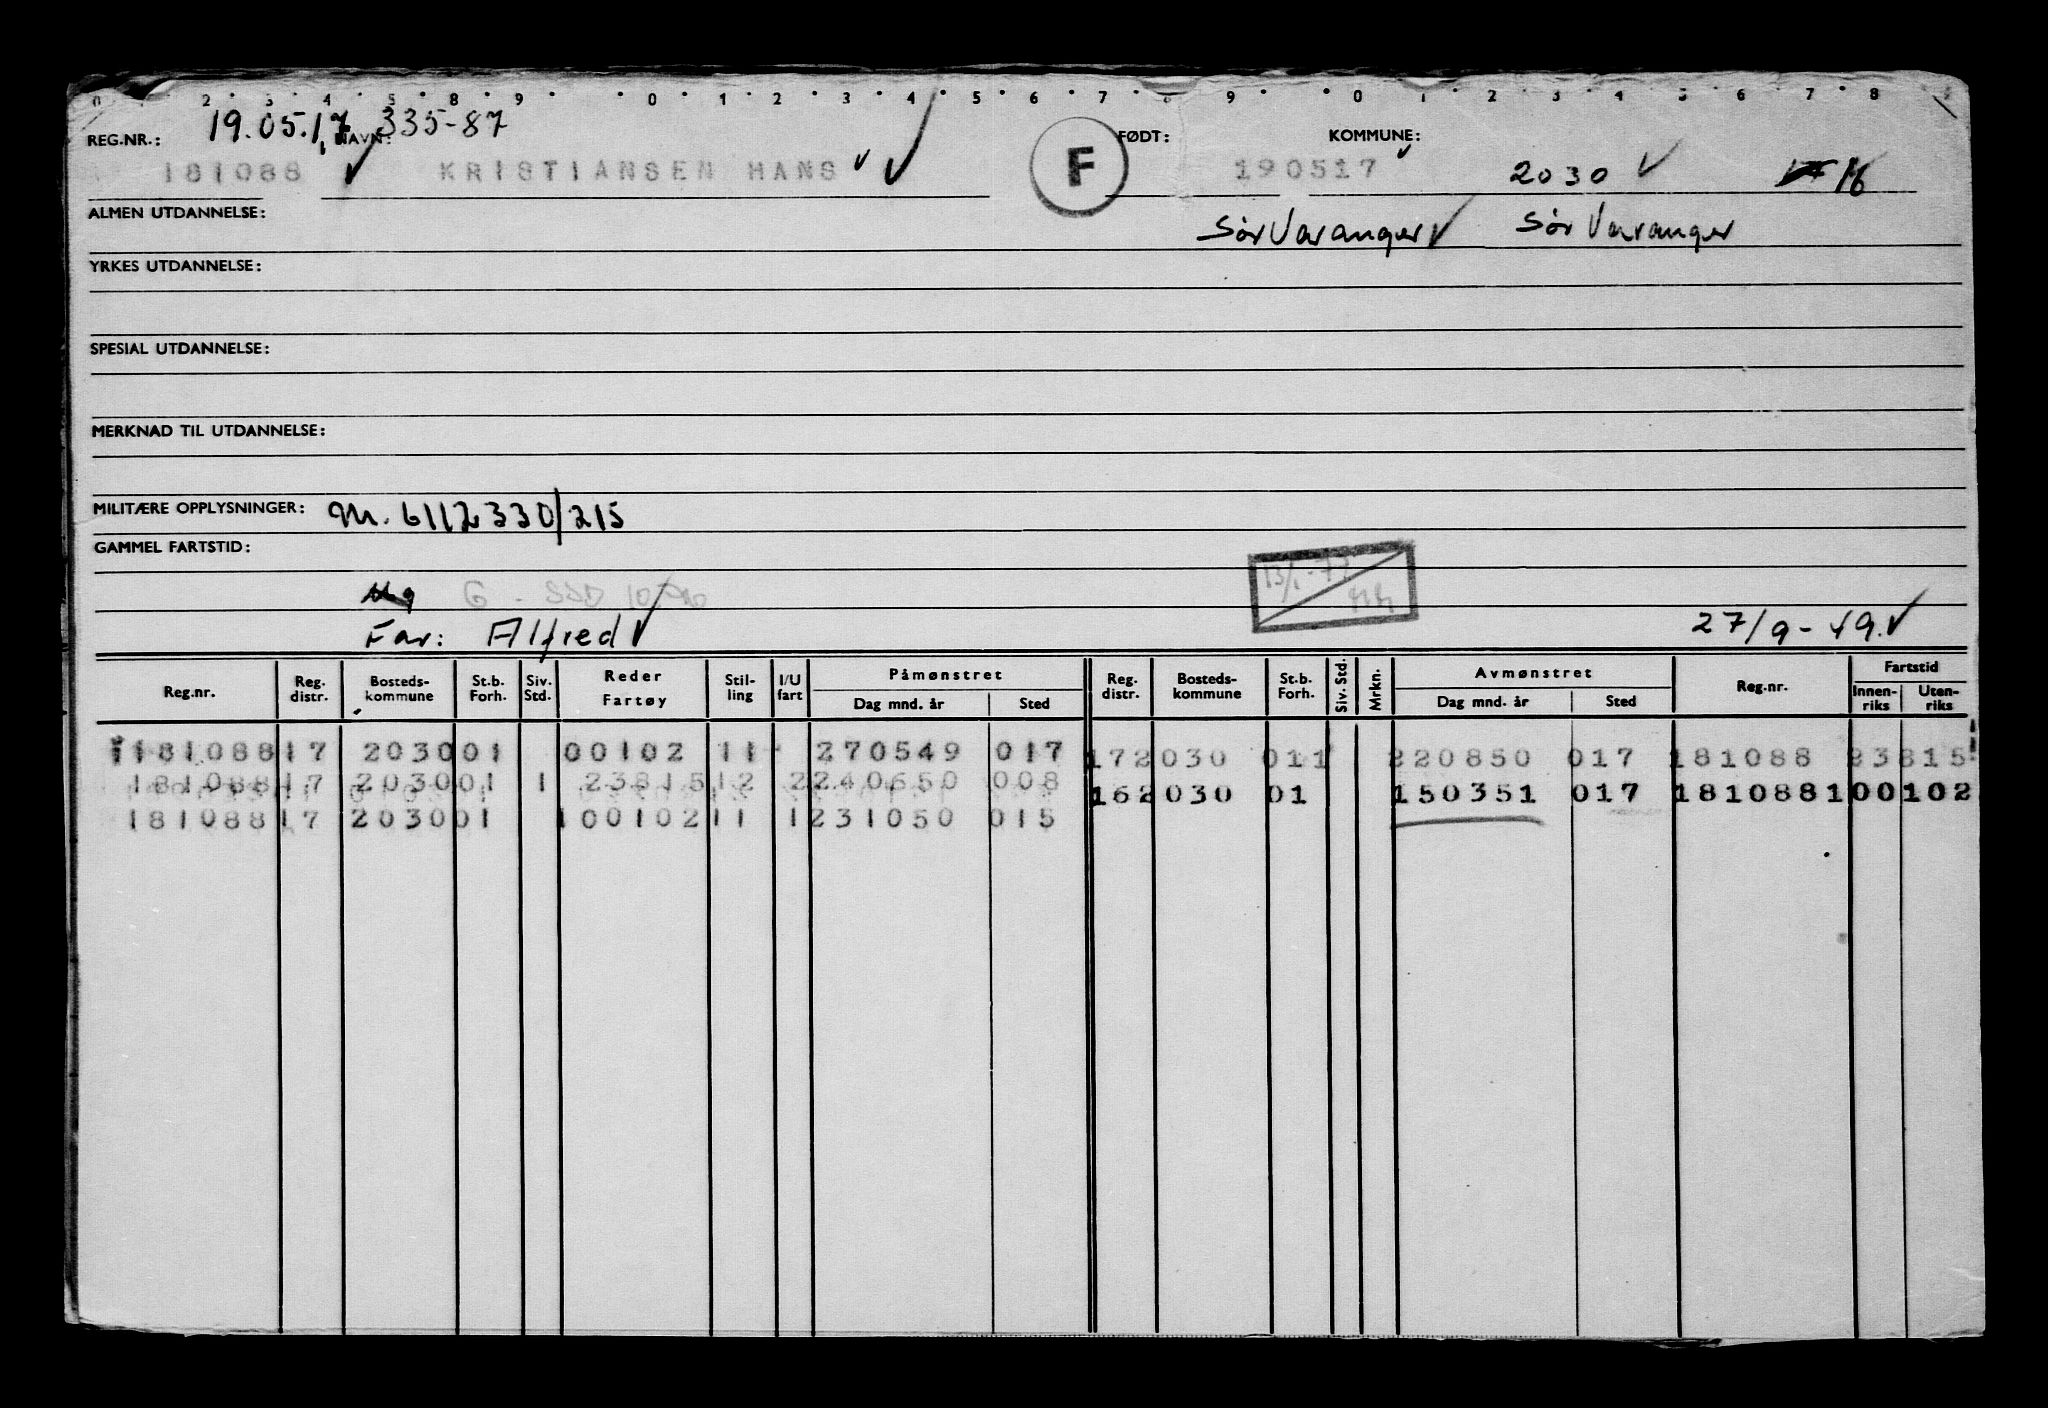 0 1 2 3 4 5 8 9 0 1 2 3 4 5 6 7 8 9 0 1 2 3 4 5 6 7 8
REG.NR.: 19.05.17 NAVN: 335-87 FØDT: KOMMUNE:
181088 KRISTIANSEN HANS F 190517 2030 16
ALMEN UTDANNELSE: Sør Varanger Sør Varanger
YRKES UTDANNELSE:
SPESIAL UTDANNELSE:
MERKNAD TIL UTDANNELSE:
MILITÆRE OPPLYSNINGER: M. 6112330/215
GAMMEL FARTSTID:
13/1-77
Far: Alfred 27/9-49.
Reg.nr. Reg. distr. Bosteds-kommune St.b. Forh. Siv. Std. Reder Fartøy Stil-ling I/U fart Påmønstret Dag mnd. år Sted Reg. distr. Bosteds-kommune St.b. Forh. Siv. Std. Mrkn. Avmønstret Dag mnd. år Sted Reg.nr. Fartstid Innen-riks Uten-riks
181088 17 2030 01 00102 11 270549 017 17 2030 011 220850 017 181088 23815
181088 17 2030 01 1 23815 12 2 240650 008 16 2030 01 150351 017 181088 1 00102
181088 17 2030 01 1 00102 11 1 231050 015